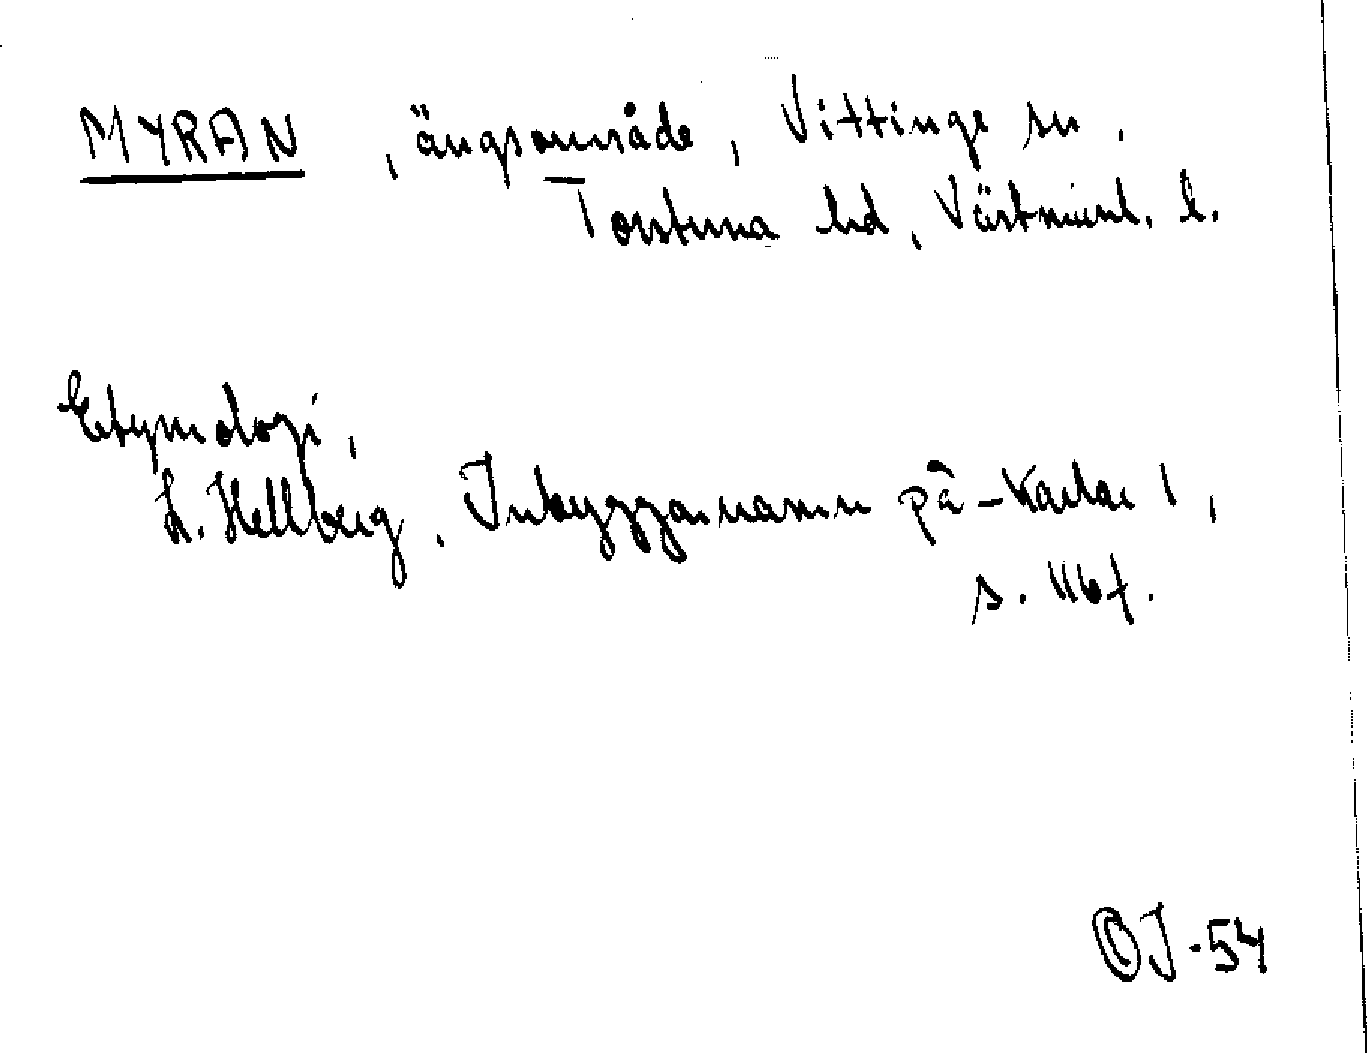 MYRAN , ängsområde, Vittinge sn,
Torstuna hd, Västmanl. l.
Etymologi,
L. Hellberg, Inbyggarnamn på -karlar 1,
s. 116f.
OJ-54